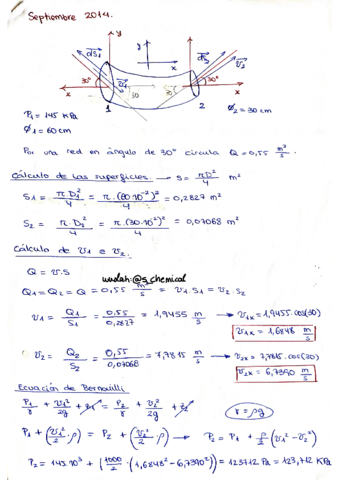 Septiembre 2014.
y
y
dS1
dS2
v2
30°
v1
30
30
30°
x
x
x
1
2
P1 = 145 KPa
Φ2 = 30 cm
Φ1 = 60 cm
Por una red en ángulo de 30° circula Q = 0,55 m³/s.
Cálculo de las superficies → S = π·D²/4 m²
S1 = π·D1²/4 = π·(60·10⁻²)²/4 = 0,2827 m²
S2 = π·D2²/4 = π·(30·10⁻²)²/4 = 0,07068 m²
Cálculo de v1 e v2.
Q = v·S
wuolah:@s_chemical
Q1 = Q2 = Q = 0,55 m³/s = v1·S1 = v2·S2
v1 = Q1/S1 = 0,55/0,2827 = 1,9455 m/s → v1x = 1,9455·cos(30)
v1x = 1,6848 m/s
v2 = Q2/S2 = 0,55/0,07068 = 7,7815 m/s → v2x = 7,7815·cos(30)
v2x = 6,7390 m/s
Ecuación de Bernoulli
P1/γ + v1²/2g + z1 = P2/γ + v2²/2g + z2
γ = ρg
P1 + (v1²/2·ρ) = P2 + (v2²/2·ρ) → P2 = P1 + ρ/2 (v1² - v2²)
P2 = 145·10³ + (1000/2·(1,6848² - 6,7390²)) = 123712 Pa = 123,712 KPa